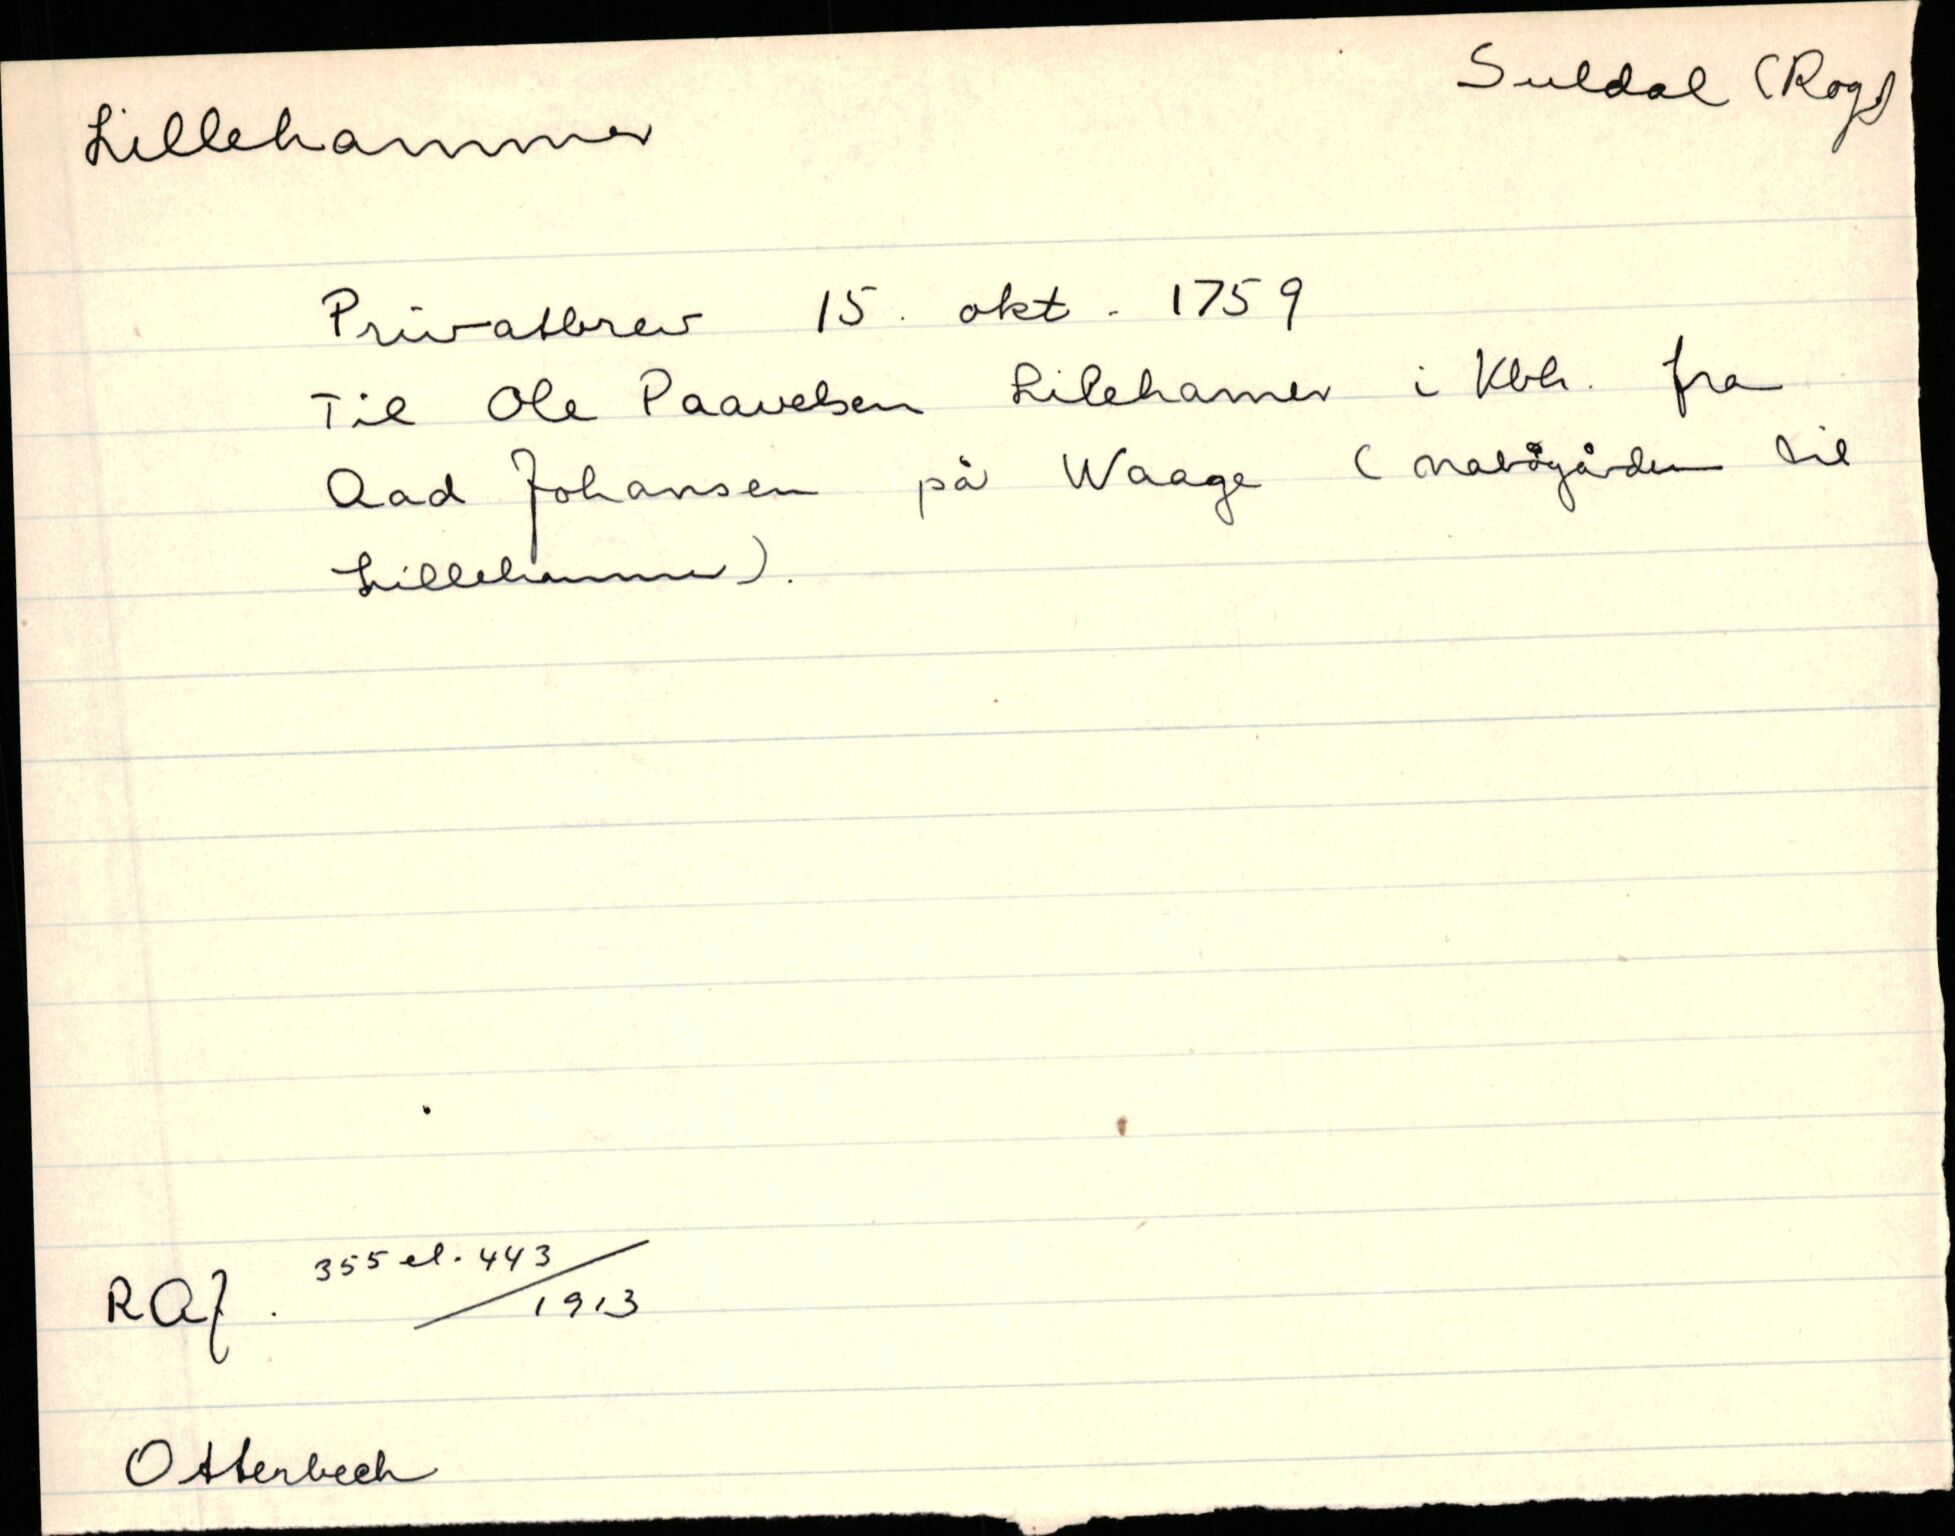 Suldal (Rog.)
Lillehammer
Privatbrev 15. okt. 1759
Til Ole Paavelsen Lilehamer i Kbh. fra
Aad Johansen på Waage (nabogården til
Lillehammer).
RAJ. 355 el. 443/1913
Otterbech